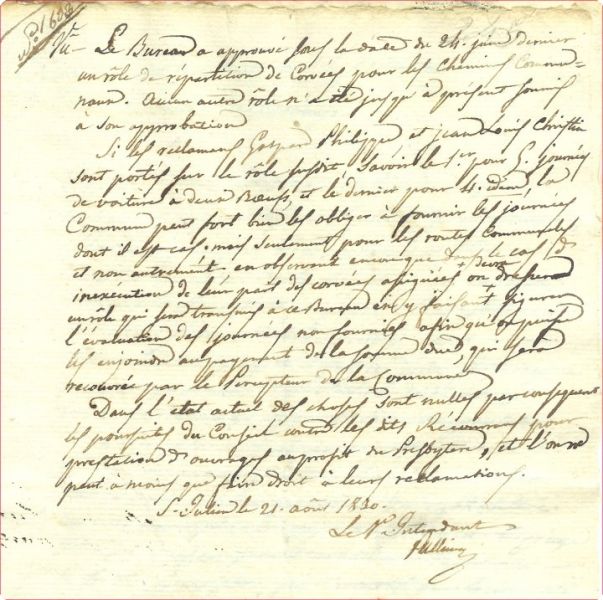 Nº 1688
Vu - Le Bureau a approuvé sous la date du 24 juin dernier
un rôle de répartition de Corvées pour les chemins Commu-
naux. Aucun autre rôle n'a été jusqu'à présent soumis
à son approbation
Si les réclamans Gaspar Philippe et Jean Louis Christin
sont portés sur le rôle susdit, savoir le 1.er pour 5. journées
de voiture à deux Bœufs, et le dernier pour 4. idem, la
Commune peut fort bien les obliger à fournir les journées
dont il est cas, mais seulement pour les routes Communales
et non autrement, en observant encore que dans le cas d'
inexécution de leur part des corvées assignées on devra dresser
un rôle qui sera transmis à ce Bureau en y faisant figurer
l'évaluation des journées non fournies afin qu'on puisse
les enjoindre au payement de la somme due, qui sera
recouvrée par le Percepteur de la Commune
Dans l'état actuel des choses sont nulles par conséquent
les poursuites du Conseil contre les dits Recourans pour
prestation d'ouvrages au profit du Presbytère, et l'on ne
peut à moins que faire droit à leurs réclamations.
S. Julien le 21. août 1830.
Le V. Intendant